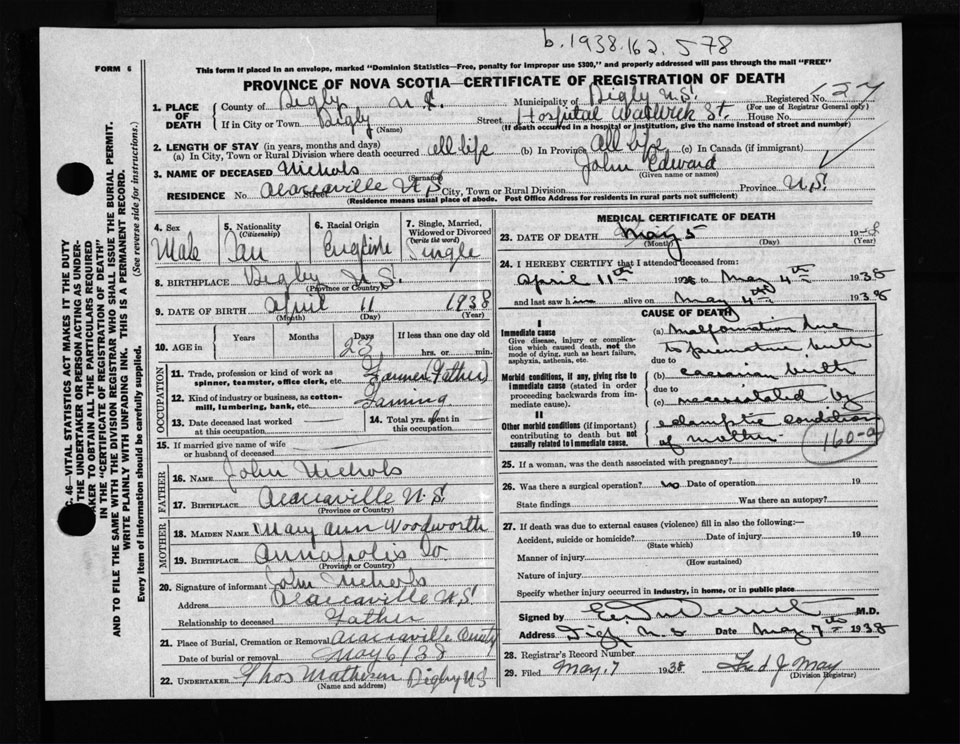 b.1938.162.578
FORM 6
This form if placed in an envelope, marked "Dominion Statistics—Free, penalty for improper use $300," and properly addressed will pass through the mail "FREE"
PROVINCE OF NOVA SCOTIA—CERTIFICATE OF REGISTRATION OF DEATH
1. PLACE OF DEATH
County of Digby N.S. Municipality of Digby N.S. Registered No.
(For use of Registrar General only)
If in City or Town Digby Street Hospital Warwick St. House No.
(Name) (If death occurred in a hospital or institution, give the name instead of street and number)
2. LENGTH OF STAY (in years, months and days)
(a) In City, Town or Rural Division where death occurred all life (b) In Province all life (c) In Canada (if immigrant)
3. NAME OF DECEASED Nichols John Edward
(Surname) (Given name or names)
RESIDENCE No. Acaciaville N.S. Street City, Town or Rural Division Province N.S.
(Residence means usual place of abode. Post Office Address for residents in rural parts not sufficient)
4. Sex
Male
5. Nationality
(Citizenship)
Can
6. Racial Origin
English
7. Single, Married, Widowed or Divorced
(write the word)
Single
8. BIRTHPLACE Digby N.S.
(Province or Country)
9. DATE OF BIRTH April 11 1938
(Month) (Day) (Year)
10. AGE in
Years Months Days If less than one day old
23 hrs. or min.
OCCUPATION
11. Trade, profession or kind of work as spinner, teamster, office clerk, etc. Farmer (Father)
12. Kind of industry or business, as cotton-mill, lumbering, bank, etc. Farming
13. Date deceased last worked at this occupation
14. Total yrs. spent in this occupation
15. If married give name of wife or husband of deceased
FATHER
16. NAME John Nichols
17. BIRTHPLACE Acaciaville N.S.
(Province or Country)
MOTHER
18. MAIDEN NAME Mary Ann Woodworth
19. BIRTHPLACE Annapolis Co
(Province or Country)
20. Signature of informant John Nichols
Address Acaciaville N.S.
Relationship to deceased Father
21. Place of Burial, Cremation or Removal Acaciaville
Date of burial or removal May 6/38
22. UNDERTAKER Digby N.S
(Name and address)
MEDICAL CERTIFICATE OF DEATH
23. DATE OF DEATH May 5 19 8
(Month) (Day) (Year)
24. I HEREBY CERTIFY that I attended deceased from:
April 11th 1938 to May 4th 1938
and last saw him alive on May 4th 1938
CAUSE OF DEATH
I
Immediate cause
Give disease, injury or complication which caused death, not the mode of dying, such as heart failure, asphyxia, asthenia, etc.
(a) Malformation due to premature birth
due to
Morbid conditions, if any, giving rise to immediate cause (stated in order proceeding backwards from immediate cause).
(b) caesarian birth
due to
(c) necessitated by
II
Other morbid conditions (if important) contributing to death but not causally related to immediate cause.
eclamptic condition
of mother
160-a
25. If a woman, was the death associated with pregnancy?
26. Was there a surgical operation? no Date of operation 19
State findings Was there an autopsy?
27. If death was due to external causes (violence) fill in also the following:—
Accident, suicide or homicide? Date of injury 19
(State which)
Manner of injury
(How sustained)
Nature of injury
Specify whether injury occurred in industry, in home, or in public place
Signed by M.D.
Address Digby N.S Date May 7th 1938
28. Registrar's Record Number
29. Filed May. 7 1938 Fred J May
(Division Registrar)
C. 46—VITAL STATISTICS ACT MAKES IT THE DUTY
THE UNDERTAKER OR PERSON ACTING AS UNDER-
TAKER TO OBTAIN ALL THE PARTICULARS REQUIRED
IN THE "CERTIFICATE OF REGISTRATION OF DEATH"
AND TO FILE THE SAME WITH THE DIVISION REGISTRAR WHO SHALL ISSUE THE BURIAL PERMIT.
WRITE PLAINLY WITH UNFADING INK. THIS IS A PERMANENT RECORD.
Every item of information should be carefully supplied. (See reverse side for instructions.)